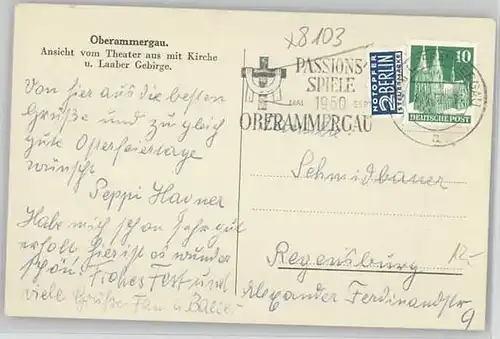 Oberammergau.
Ansicht vom Theater aus mit Kirche
u. Laaber Gebirge.
Von hier aus die besten
Grüße und zugleich
gute Osterfeiertage
wünscht
Peppi
Habe mich schon sehr gut
erholt hier ist es wunder
schön! Frohes Fest und
viele Grüße Fam u
x8103
PASSIONS-
SPIELE
MAI 1950 SEPT
OBERAMMERGAU
NOTOPFER
2 BERLIN
STEUERMARKE
10
DEUTSCHE POST
a
Schmidbauer
Regensburg
12-
Alexander Ferdinandstr
9